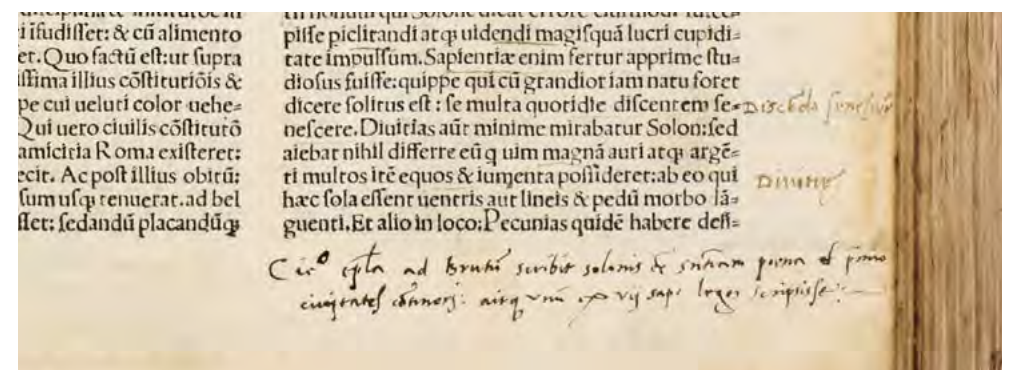 i ifudiſſet: & cū alimento
et. Quo factū eſt: ut ſupra
iſſima illius cōſtitutiōis &
pe cui ueluti color uehe=
Qui uero ciuilis cōſtitutō
amicitia Roma exiſteret:
ecit. Ac poſt illius obitū:
ſum uſqꝫ tenuerat. ad bel
ſſet: ſedandū placandūqꝫ
piſſe piclitandi atqꝫ uidendi magiſquā lucri cupidi=
tate impulſum. Sapientiæ enim fertur apprime ſtu=
dioſus fuiſſe: quippe qui cū grandior iam natu foret
dicere ſolitus eſt: ſe multa quotidie diſcentem ſe=
neſcere. Diuitias aūt minime mirabatur Solon: ſed
aiebat nihil differre eū q uim magnā auri atqꝫ argē=
ti multos itē equos & iumenta poſſideret: ab eo qui
hæc ſola eſſent uentris aut lineis & pedū morbo lā=
guenti. Et alio in loco: Pecunias quidē habere deſi=
Diuitie
Cicº epla ad Brutū scribit solonis sntiam poena et pmio
ciuitates scripisse: